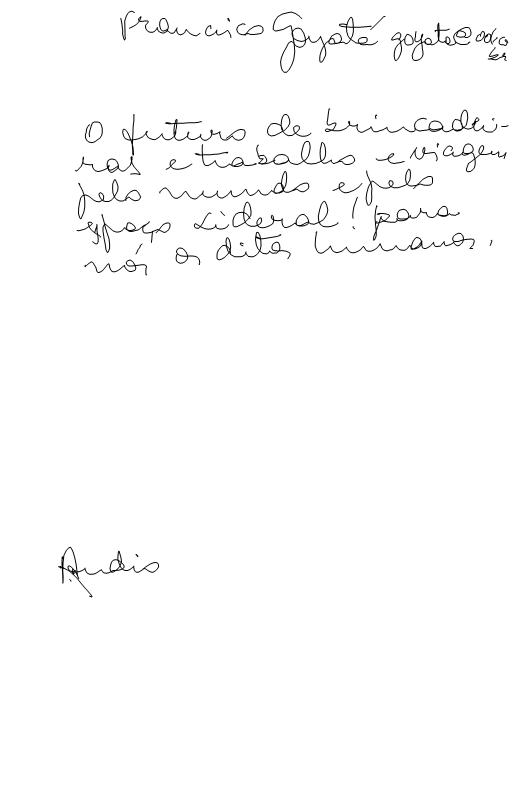 Francisco Goyatá goyata@
O futuro de brincadei-
ras e trabalho e viagem
pelo mundo e pelo
espaço sideral! para
nós os ditos humanos.